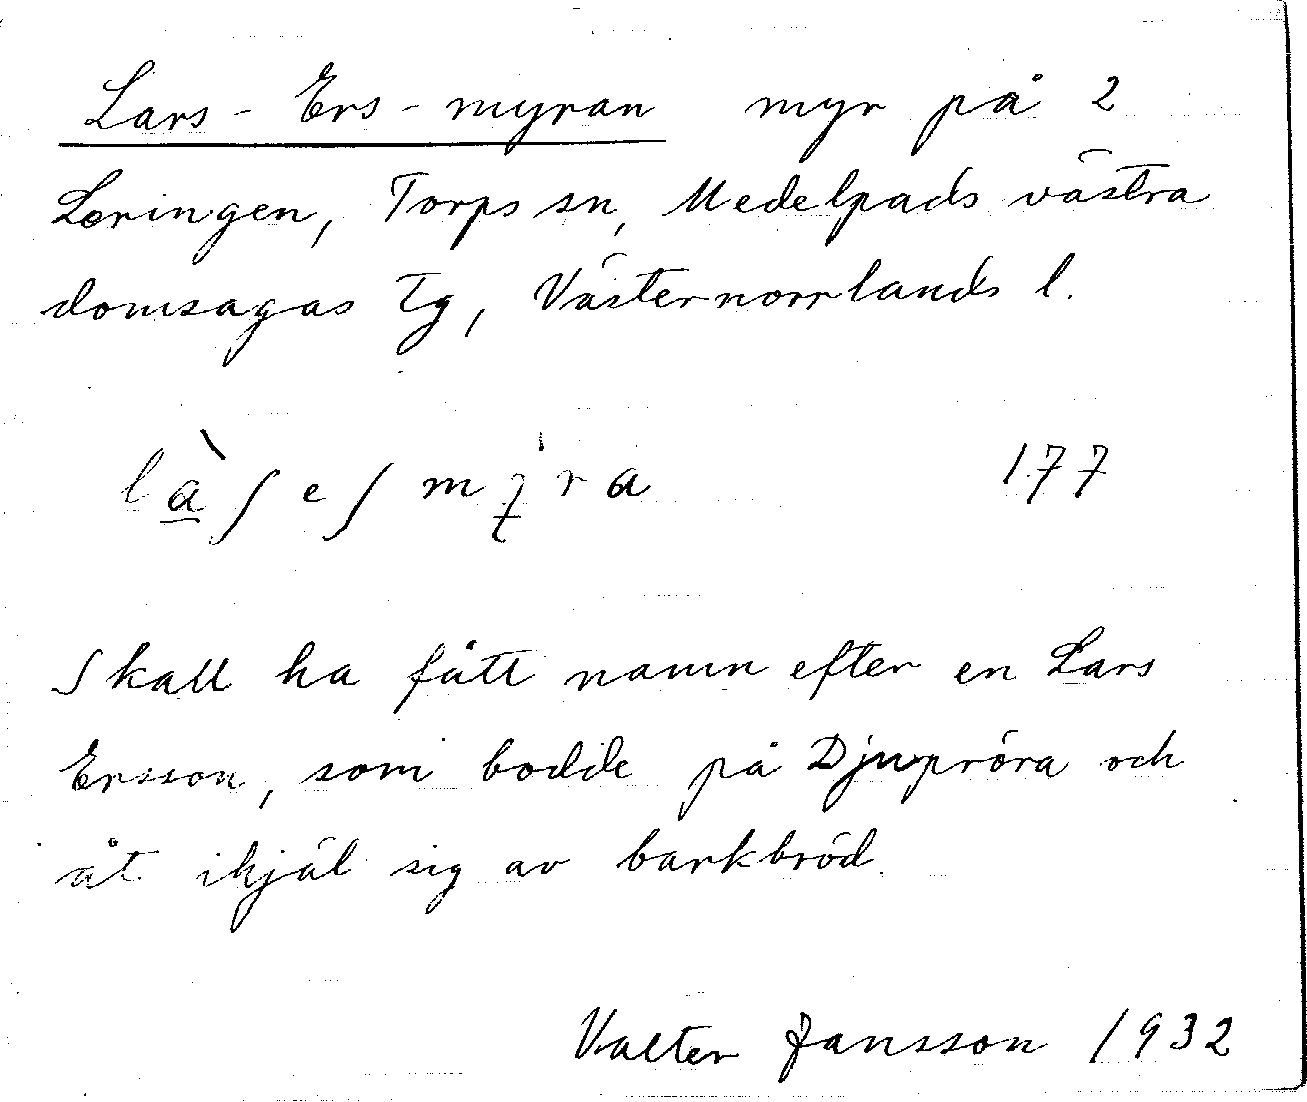 Lars-Ers-myran myr på 2
Leringen, Torps sn, Medelpads västra
domsagas tg, Västernorrlands l.
177
Skall ha fått namn efter en Lars
Ersson, som bodde på Djupröra och
åt ihjäl sig av barkbröd.
Valter Jansson 1932